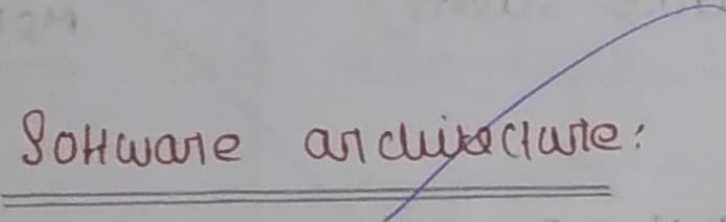 Software architecture: